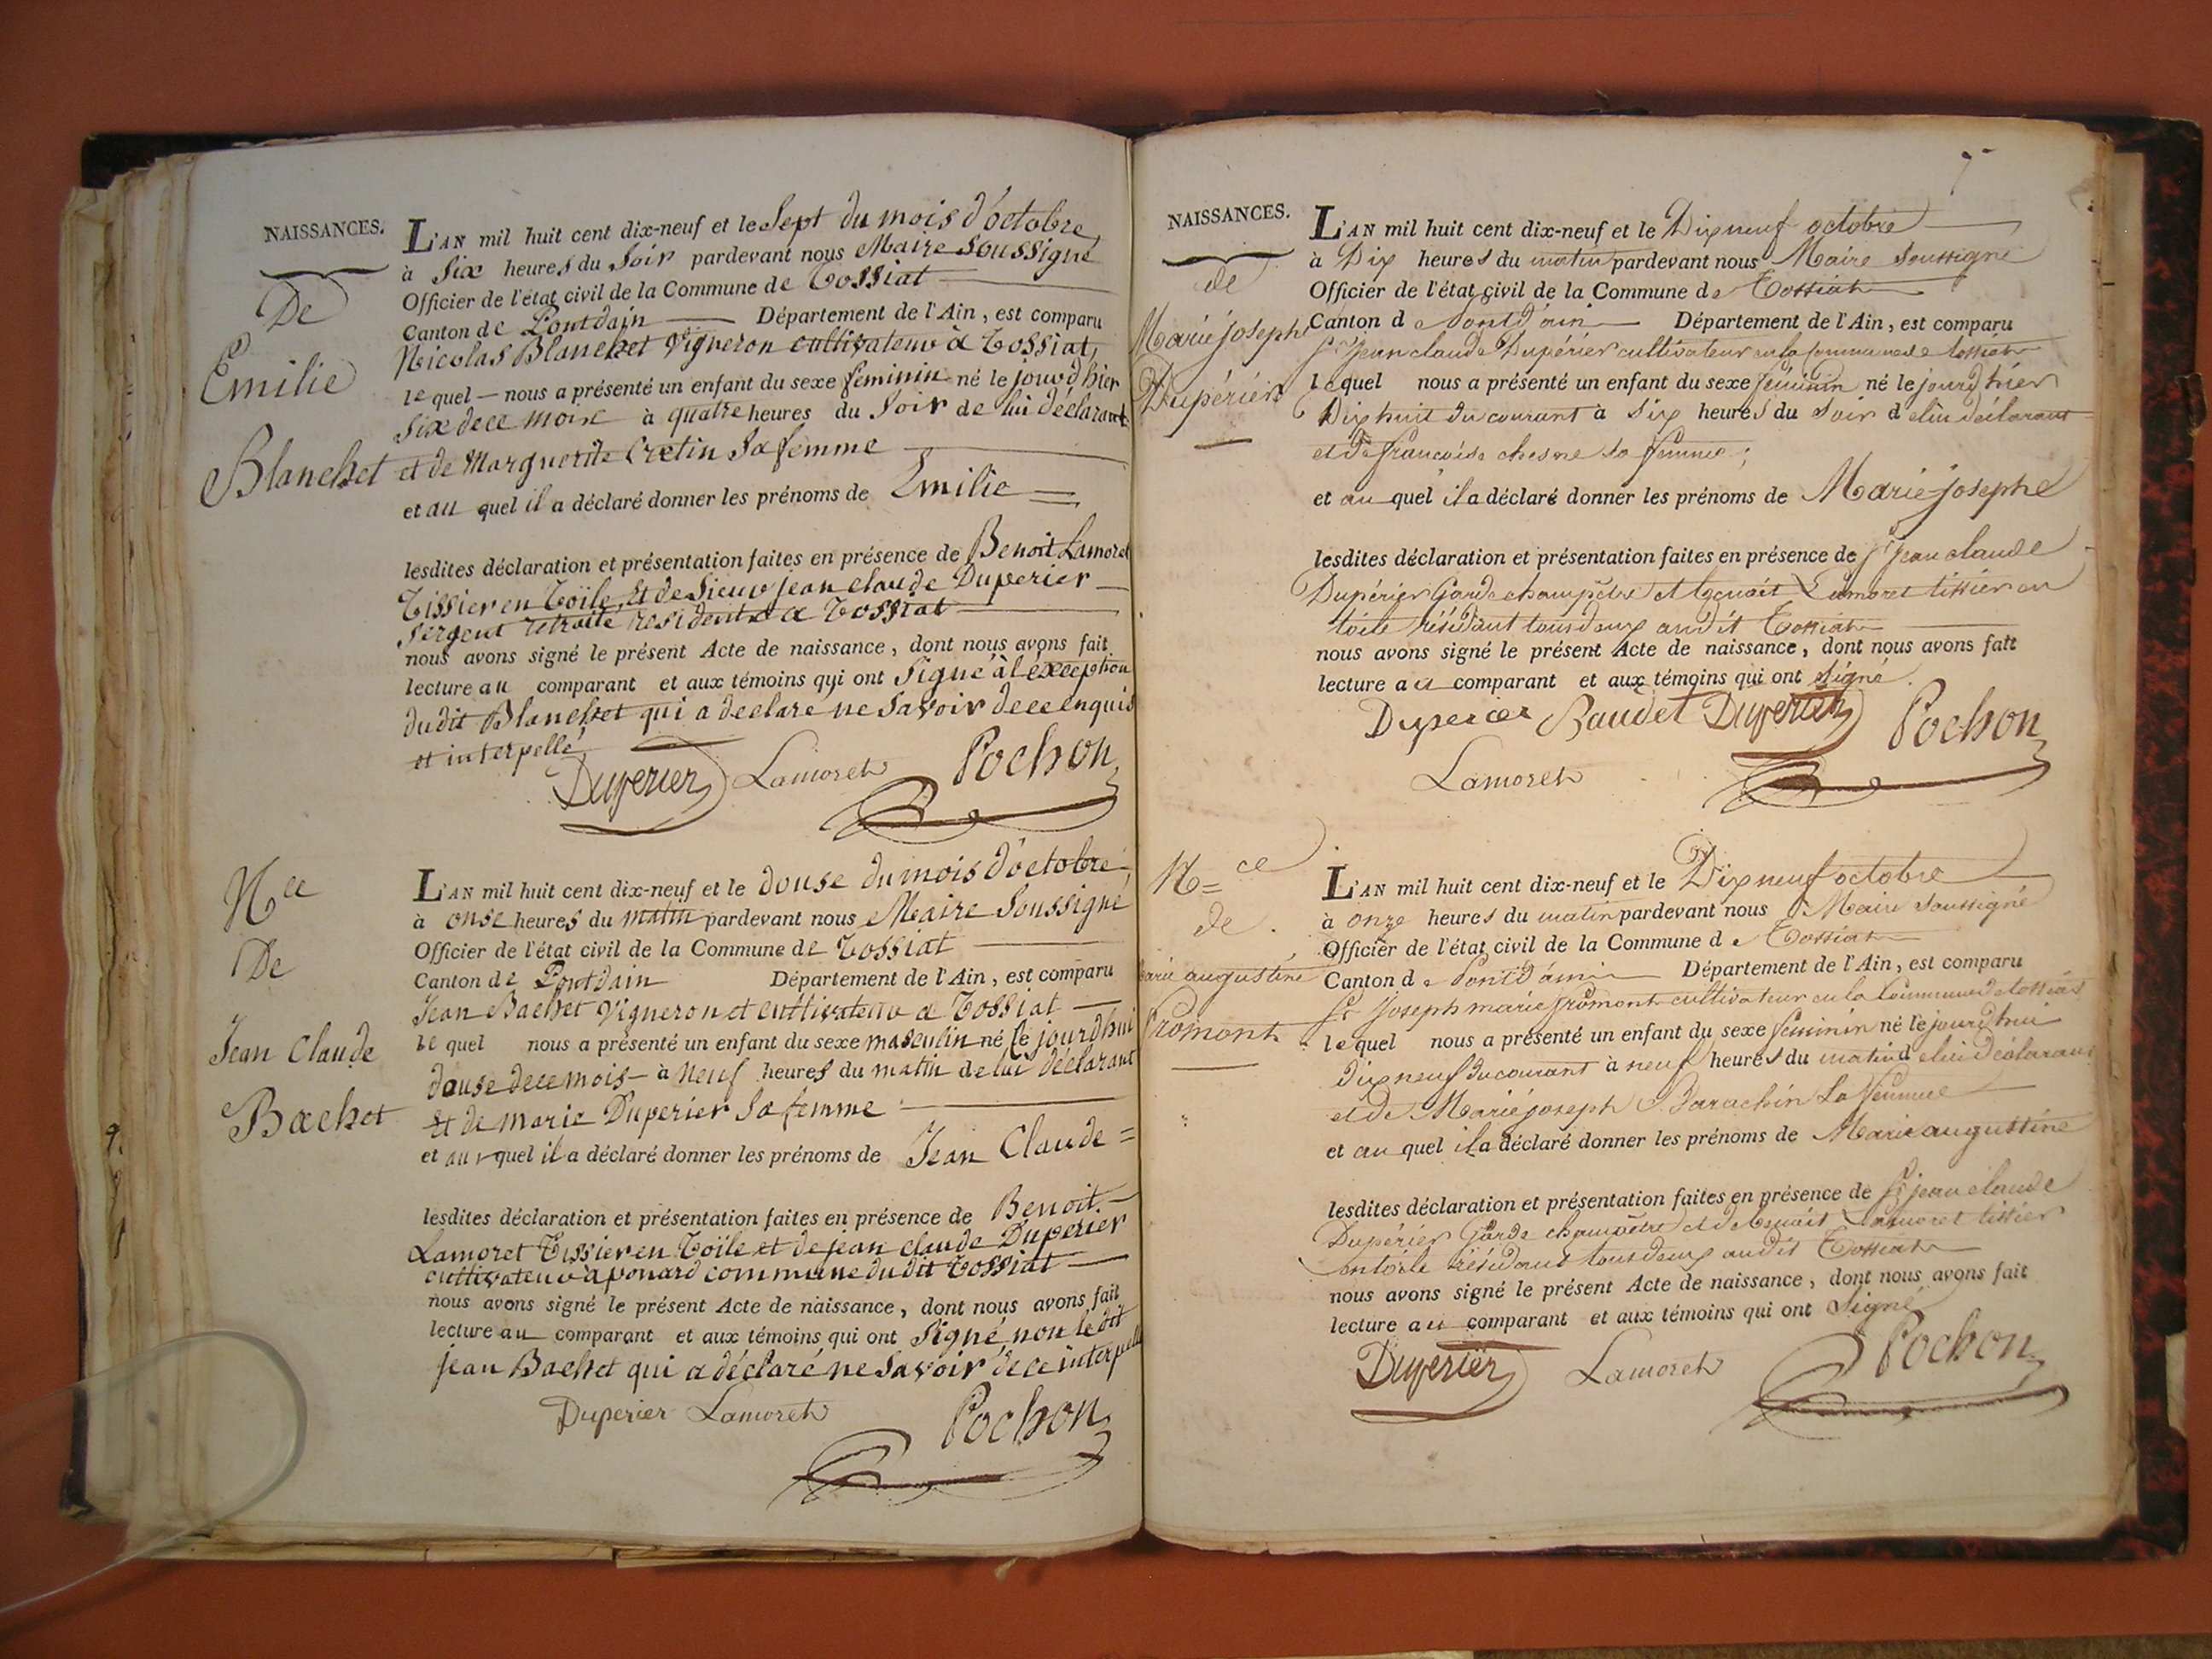 NAISSANCES.
De
Emilie
Blanchet
L'AN mil huit cent dix-neuf et le Sept du mois d'octobre
à Six heures du Soir pardevant nous Maire Soussigné
Officier de l'état civil de la Commune de Tossiat
Canton de Pontdain Département de l'Ain, est comparu
Nicolas Blanchet Vigneron cultivateur à Tossiat,
le quel nous a présenté un enfant du sexe feminin né le jourd'hier
Six de ce mois à quatre heures du Soir de lui déclarant
et de Marguerite Cretin Sa femme
et au quel il a déclaré donner les prénoms de Emilie
lesdites déclaration et présentation faites en présence de Benoit Lamoret
Tissier en Toile, Et de Sieur jean claude Duperier
Sergent retraité residents a Tossiat
nous avons signé le présent Acte de naissance, dont nous avons fait
lecture au comparant et aux témoins qui ont Signé à l'exception
du dit Blanchet qui a declaré ne Savoir de ce enquis
et interpellé
Duperier Lamoret Pochon
Nce
De
Jean Claude
Bachet
L'AN mil huit cent dix-neuf et le douse du mois d'octobre
à onse heures du matin pardevant nous Maire Soussigné
Officier de l'état civil de la Commune de Tossiat
Canton de Pontdain Département de l'Ain, est comparu
Jean Bachet Vigneron et cultivateur a Tossiat
le quel nous a présenté un enfant du sexe masculin né le jourd'hui
douse de ce mois à neuf heures du matin de lui déclarant
Et de marie Duperier Sa femme
et au quel il a déclaré donner les prénoms de Jean Claude
lesdites déclaration et présentation faites en présence de Benoit
Lamoret Tissier en Toile et de jean claude Duperier
cultivateur à ponard commune du dit Tossiat
nous avons signé le présent Acte de naissance, dont nous avons fait
lecture au comparant et aux témoins qui ont Signé, non le dit
jean Bachet qui a déclaré ne Savoir de ce interpellé
Duperier Lamoret Pochon
7
NAISSANCES.
de
Marie josephe
Dupérier
L'AN mil huit cent dix-neuf et le Dix neuf octobre
à Dix heures du matin pardevant nous Maire Soussigné
Officier de l'état civil de la Commune de Tossiat
Canton de Pont d'ain Département de l'Ain, est comparu
Sr jean claude Dupérier cultivateur en la Commune de tossiat
le quel nous a présenté un enfant du sexe féminin né le jourd'hier
Dix huit du courant à Six heures du Soir de lui déclarant
et de francoise chesne Sa femme;
et au quel il a déclaré donner les prénoms de Marie josephe
lesdites déclaration et présentation faites en présence de Sr jean claude
Dupérier Garde champêtre et benoit Lamoret tissier en
toile résidant tous deux audit Tossiat
nous avons signé le présent Acte de naissance, dont nous avons fait
lecture au comparant et aux témoins qui ont signé.
Duperier Baudet Duperier Pochon
Lamoret
Nce
de
marie augustine
Promont
L'AN mil huit cent dix-neuf et le Dix neuf octobre
à onze heures du matin pardevant nous Maire Soussigné
Officier de l'état civil de la Commune de Tossiat
Canton de Pont d'ain Département de l'Ain, est comparu
Sr joseph marie promont cultivateur en la Commune de tossiat
le quel nous a présenté un enfant du sexe féminin né le jourd'hui
dix neuf du courant à neuf heures du matin de lui déclarant
et de Marie joseph Barachin Sa femme
et au quel il a déclaré donner les prénoms de Marie augustine
lesdites déclaration et présentation faites en présence de Sr jean claude
Dupérier Garde champêtre et de benoit Lamoret tissier
en toile résidant tous deux audit Tossiat
nous avons signé le présent Acte de naissance, dont nous avons fait
lecture au comparant et aux témoins qui ont Signé
Duperier Lamoret Pochon